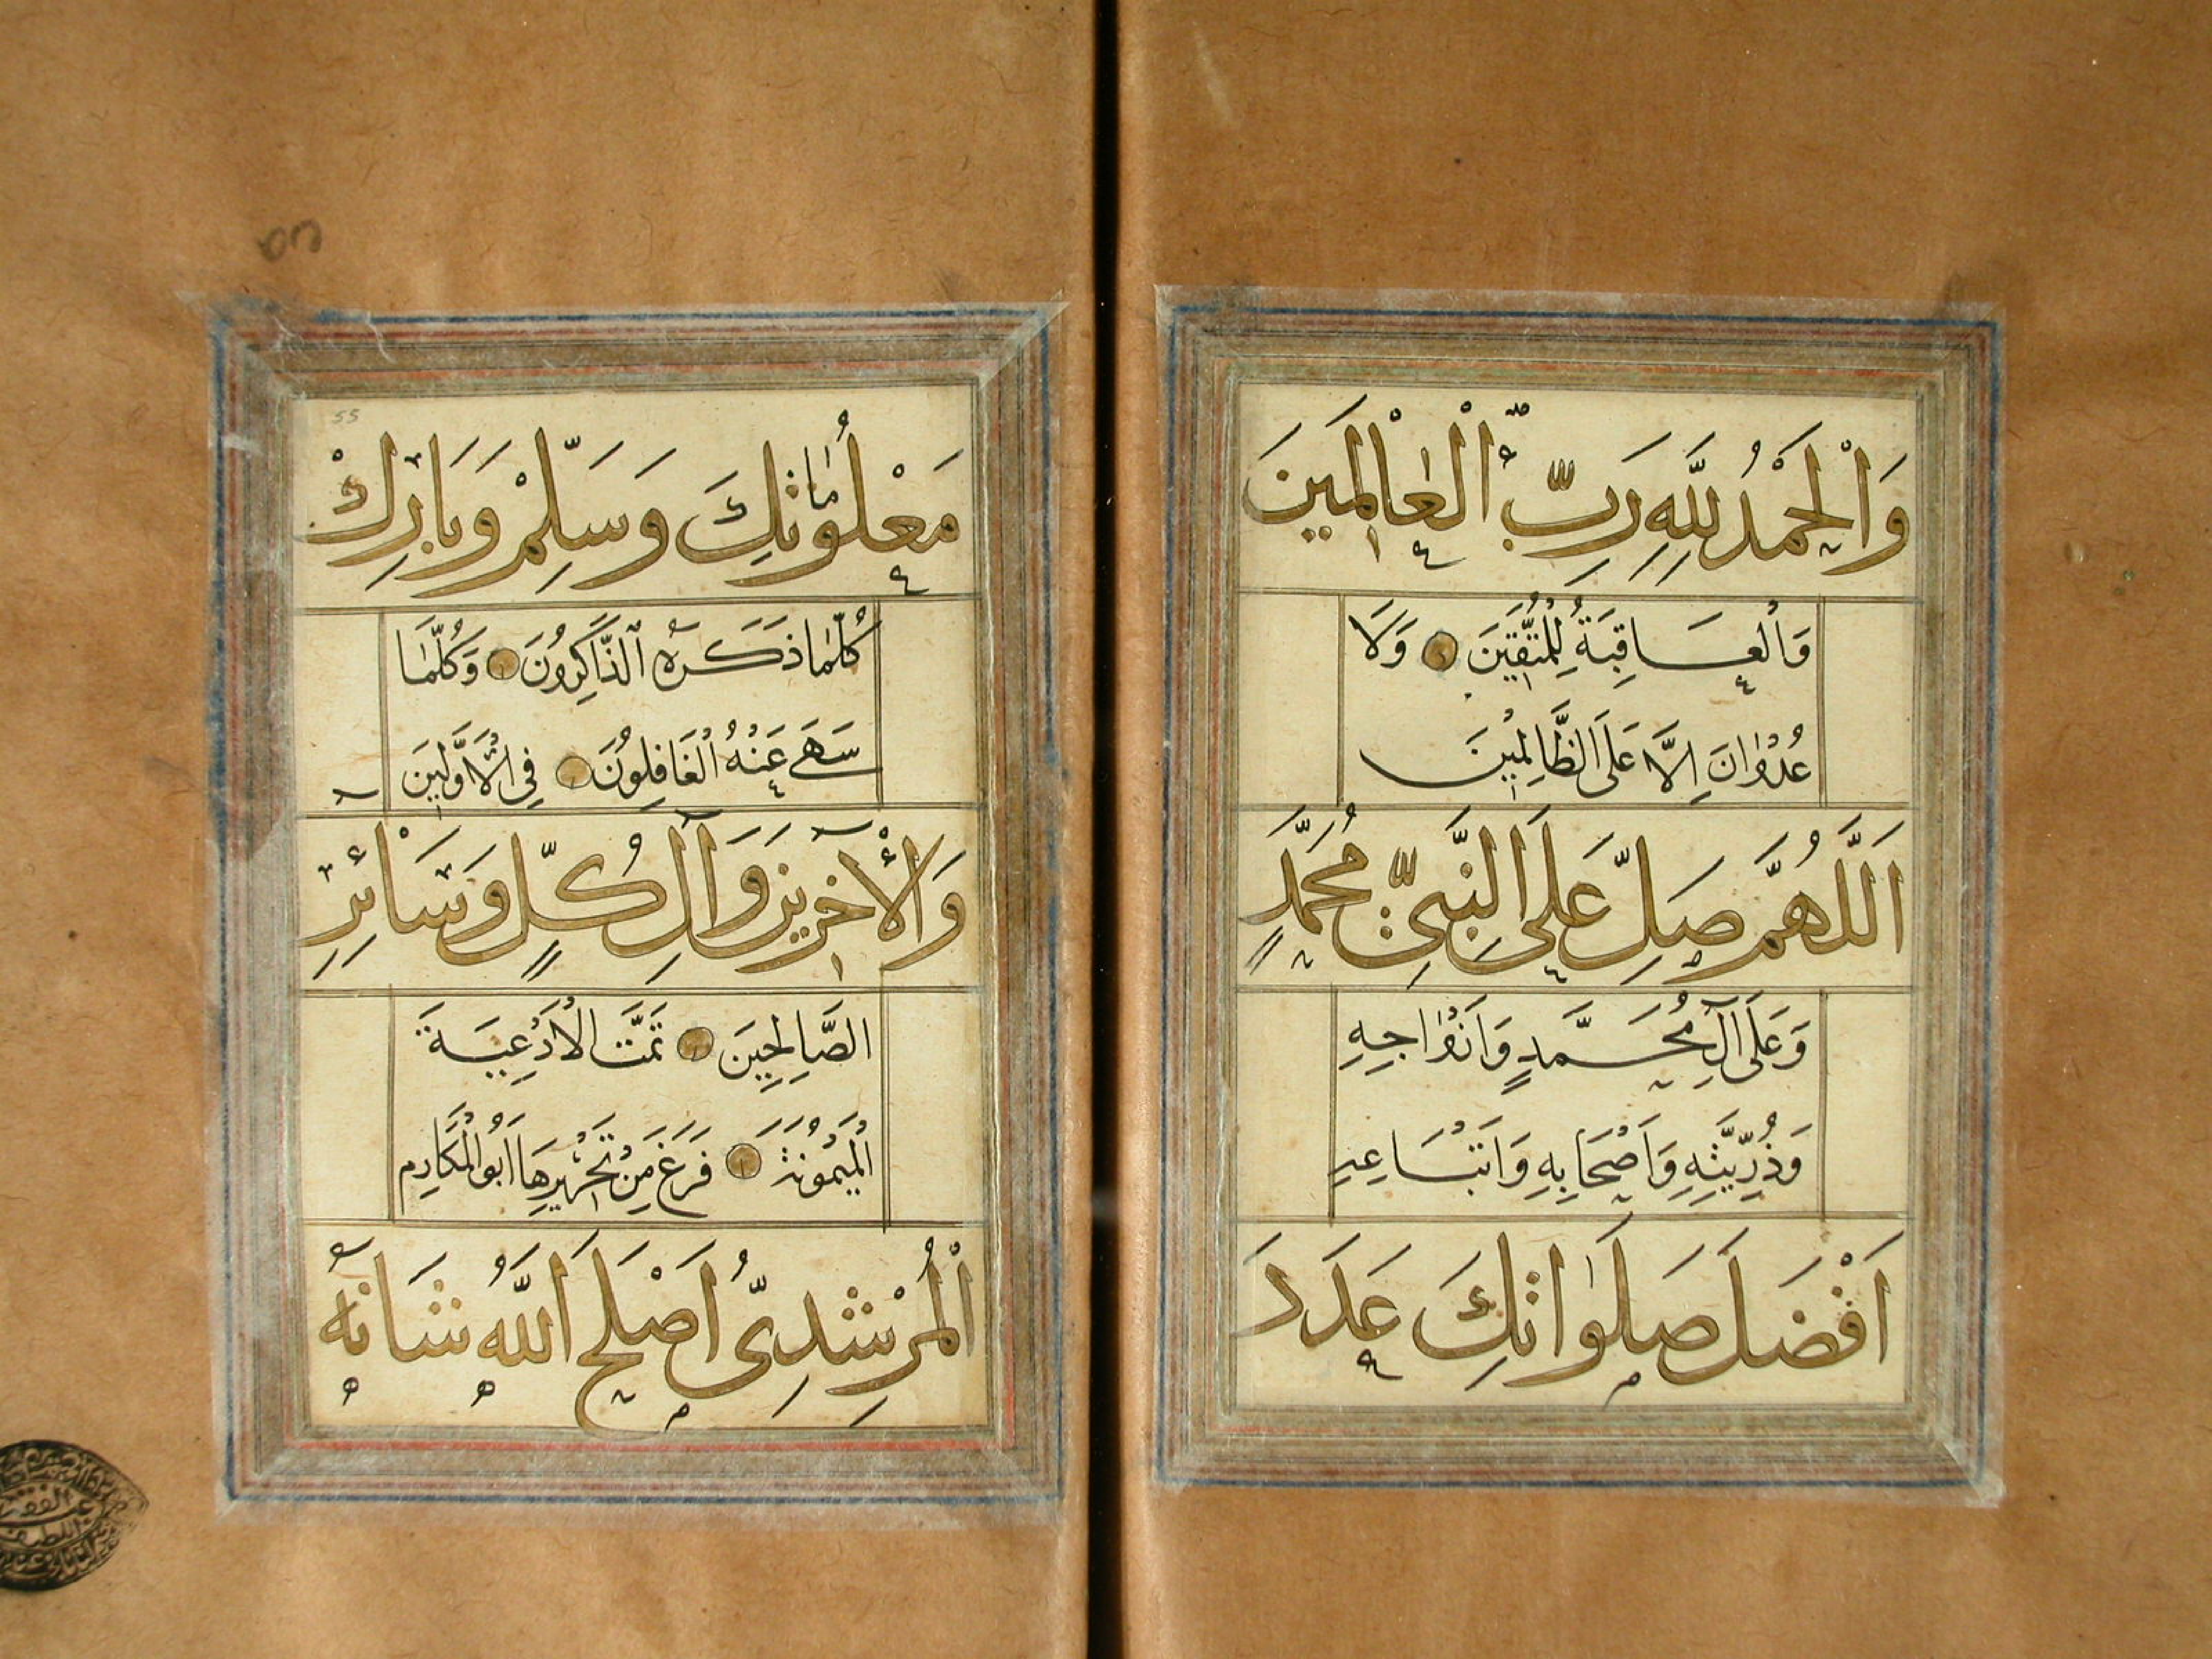 وَالْحَمْدُ لِلَّهِ رَبِّ الْعَالَمِينَ
وَالْعَاقِبَةُ لِلْمُتَّقِينَ وَلَا
عُدْوَانَ إِلَّا عَلَى الظَّالِمِينَ
اَللَّهُمَّ صَلِّ عَلَى النَّبِيِّ مُحَمَّدٍ
وَعَلَى آلِ مُحَمَّدٍ وَاَزْوَاجِهِ
وَذُرِّيَّتِهِ وَاَصْحَابِهِ وَاَتْبَاعِهِ
اَفْضَلَ صَلَوَاتِكَ عَدَدَ
55
مَعْلُومَاتِكَ وَسَلِّمْ وَبَارِكْ
كُلَّمَا ذَكَرَهُ الذَّاكِرُونَ وَكُلَّمَا
سَهَى عَنْهُ الْغَافِلُونَ فِي الْاَوَّلِينَ
وَالْآخِرِينَ وَآلِ كُلٍّ وَسَائِرِ
الصَّالِحِينَ تَمَّتَ الْاَدْعِيَةَ
الْمَيْمُونَةَ فَرَغَ مِنْ تَحْرِيرِهَا اَبُو الْمَكَارِمِ
الْمُرْشِدِيُّ اَصْلَحَ اللَّهُ شَانَهُ